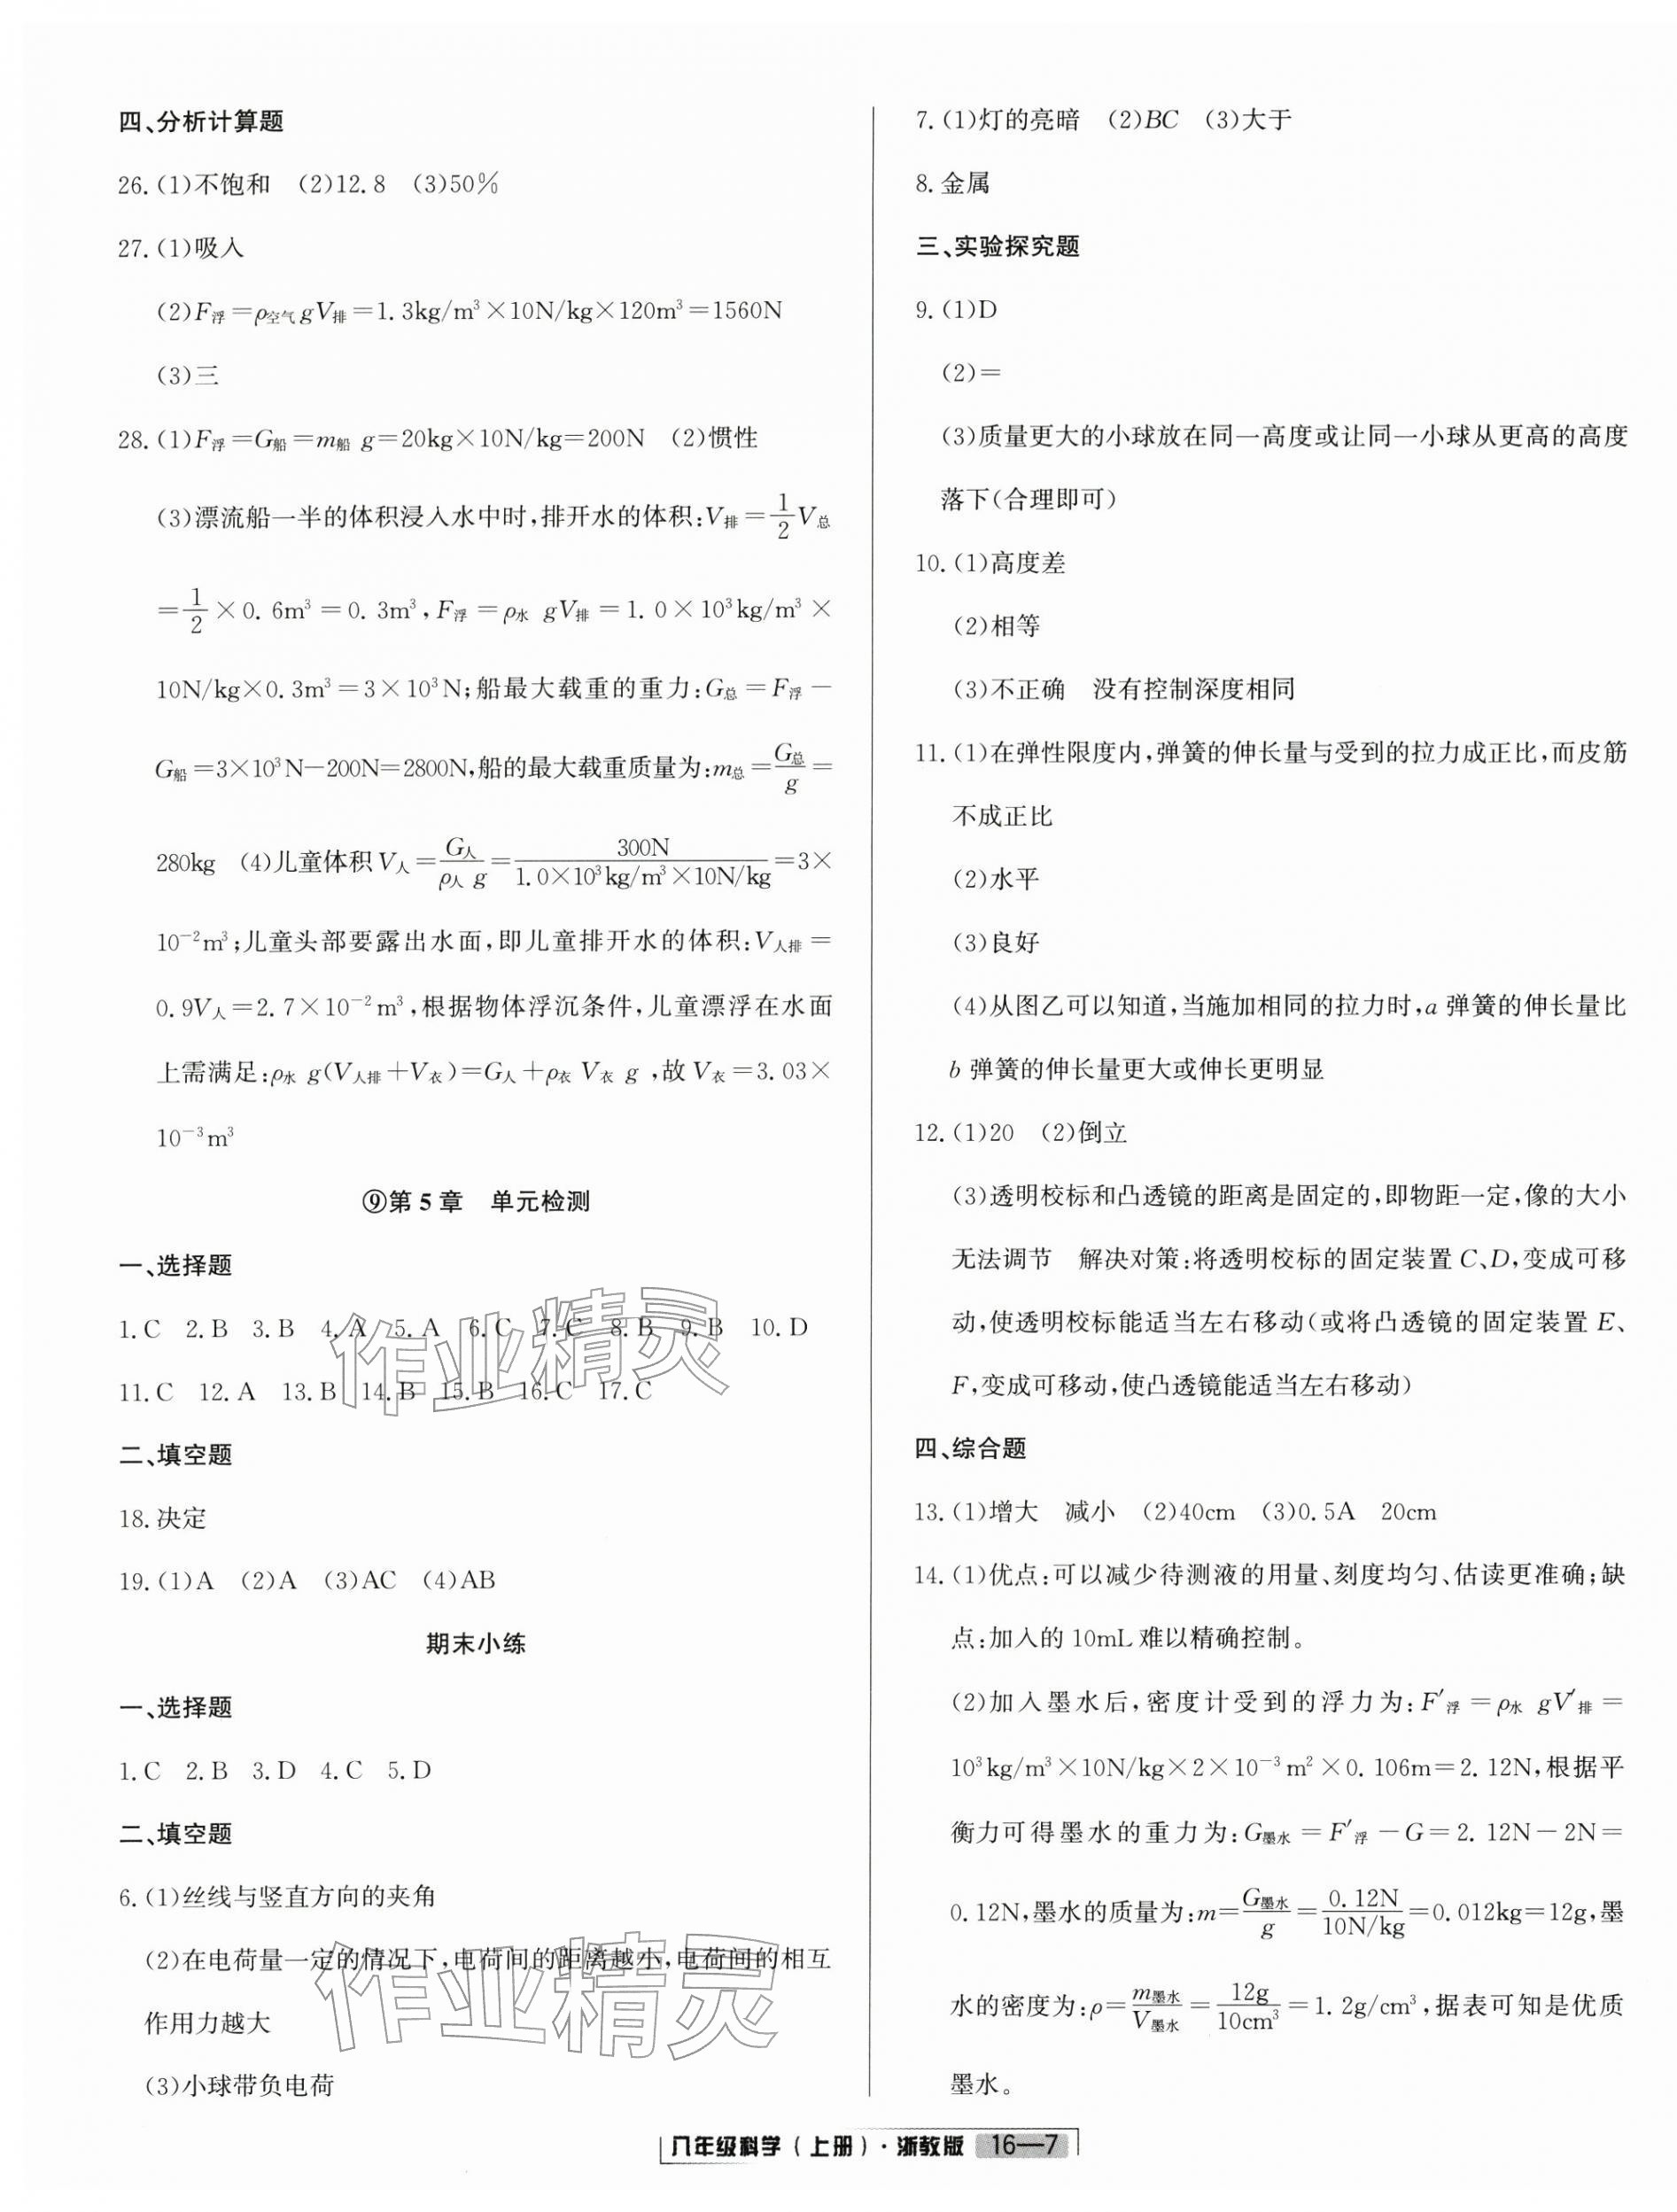 四、分析计算题
26.(1)不饱和 (2)12.8 (3)50%
27.(1)吸入
(2)F浮=ρ空气gV排=1.3kg/m³×10N/kg×120m³=1560N
(3)三
28.(1)F浮=G船=m船 g=20kg×10N/kg=200N (2)惯性
(3)漂流船一半的体积浸入水中时,排开水的体积:V排=1/2V总
=1/2×0.6m³=0.3m³,F浮=ρ水 gV排=1.0×10³kg/m³×
10N/kg×0.3m³=3×10³N;船最大载重的重力:G总=F浮-
G船=3×10³N-200N=2800N,船的最大载重质量为:m总=G总/g=
280kg (4)儿童体积V人=G人/(ρ人 g)=300N/(1.0×10³kg/m³×10N/kg)=3×
10⁻²m³;儿童头部要露出水面,即儿童排开水的体积:V人排=
0.9V人=2.7×10⁻²m³,根据物体浮沉条件,儿童漂浮在水面
上需满足:ρ水 g(V人排+V衣)=G人+ρ衣 V衣 g,故V衣=3.03×
10⁻³m³
⑨第5章 单元检测
一、选择题
1.C 2.B 3.B 4.A 5.A 6.C 7.C 8.B 9.B 10.D
11.C 12.A 13.B 14.B 15.B 16.C 17.C
二、填空题
18.决定
19.(1)A (2)A (3)AC (4)AB
期末小练
一、选择题
1.C 2.B 3.D 4.C 5.D
二、填空题
6.(1)丝线与竖直方向的夹角
(2)在电荷量一定的情况下,电荷间的距离越小,电荷间的相互
作用力越大
(3)小球带负电荷
7.(1)灯的亮暗 (2)BC (3)大于
8.金属
三、实验探究题
9.(1)D
(2)=
(3)质量更大的小球放在同一高度或让同一小球从更高的高度
落下(合理即可)
10.(1)高度差
(2)相等
(3)不正确 没有控制深度相同
11.(1)在弹性限度内,弹簧的伸长量与受到的拉力成正比,而皮筋
不成正比
(2)水平
(3)良好
(4)从图乙可以知道,当施加相同的拉力时,a弹簧的伸长量比
b弹簧的伸长量更大或伸长更明显
12.(1)20 (2)倒立
(3)透明校标和凸透镜的距离是固定的,即物距一定,像的大小
无法调节 解决对策:将透明校标的固定装置C、D,变成可移
动,使透明校标能适当左右移动(或将凸透镜的固定装置E、
F,变成可移动,使凸透镜能适当左右移动)
四、综合题
13.(1)增大 减小 (2)40cm (3)0.5A 20cm
14.(1)优点:可以减少待测液的用量、刻度均匀、估读更准确;缺
点:加入的10mL难以精确控制。
(2)加入墨水后,密度计受到的浮力为:F′浮=ρ水 gV′排=
10³kg/m³×10N/kg×2×10⁻³m²×0.106m=2.12N,根据平
衡力可得墨水的重力为:G墨水=F′浮-G=2.12N-2N=
0.12N,墨水的质量为:m=G墨水/g=0.12N/10N/kg=0.012kg=12g,墨
水的密度为:ρ=m墨水/V墨水=12g/10cm³=1.2g/cm³,据表可知是优质
墨水。
八年级科学(上册)·浙教版 16—7
作业精灵
作业精灵